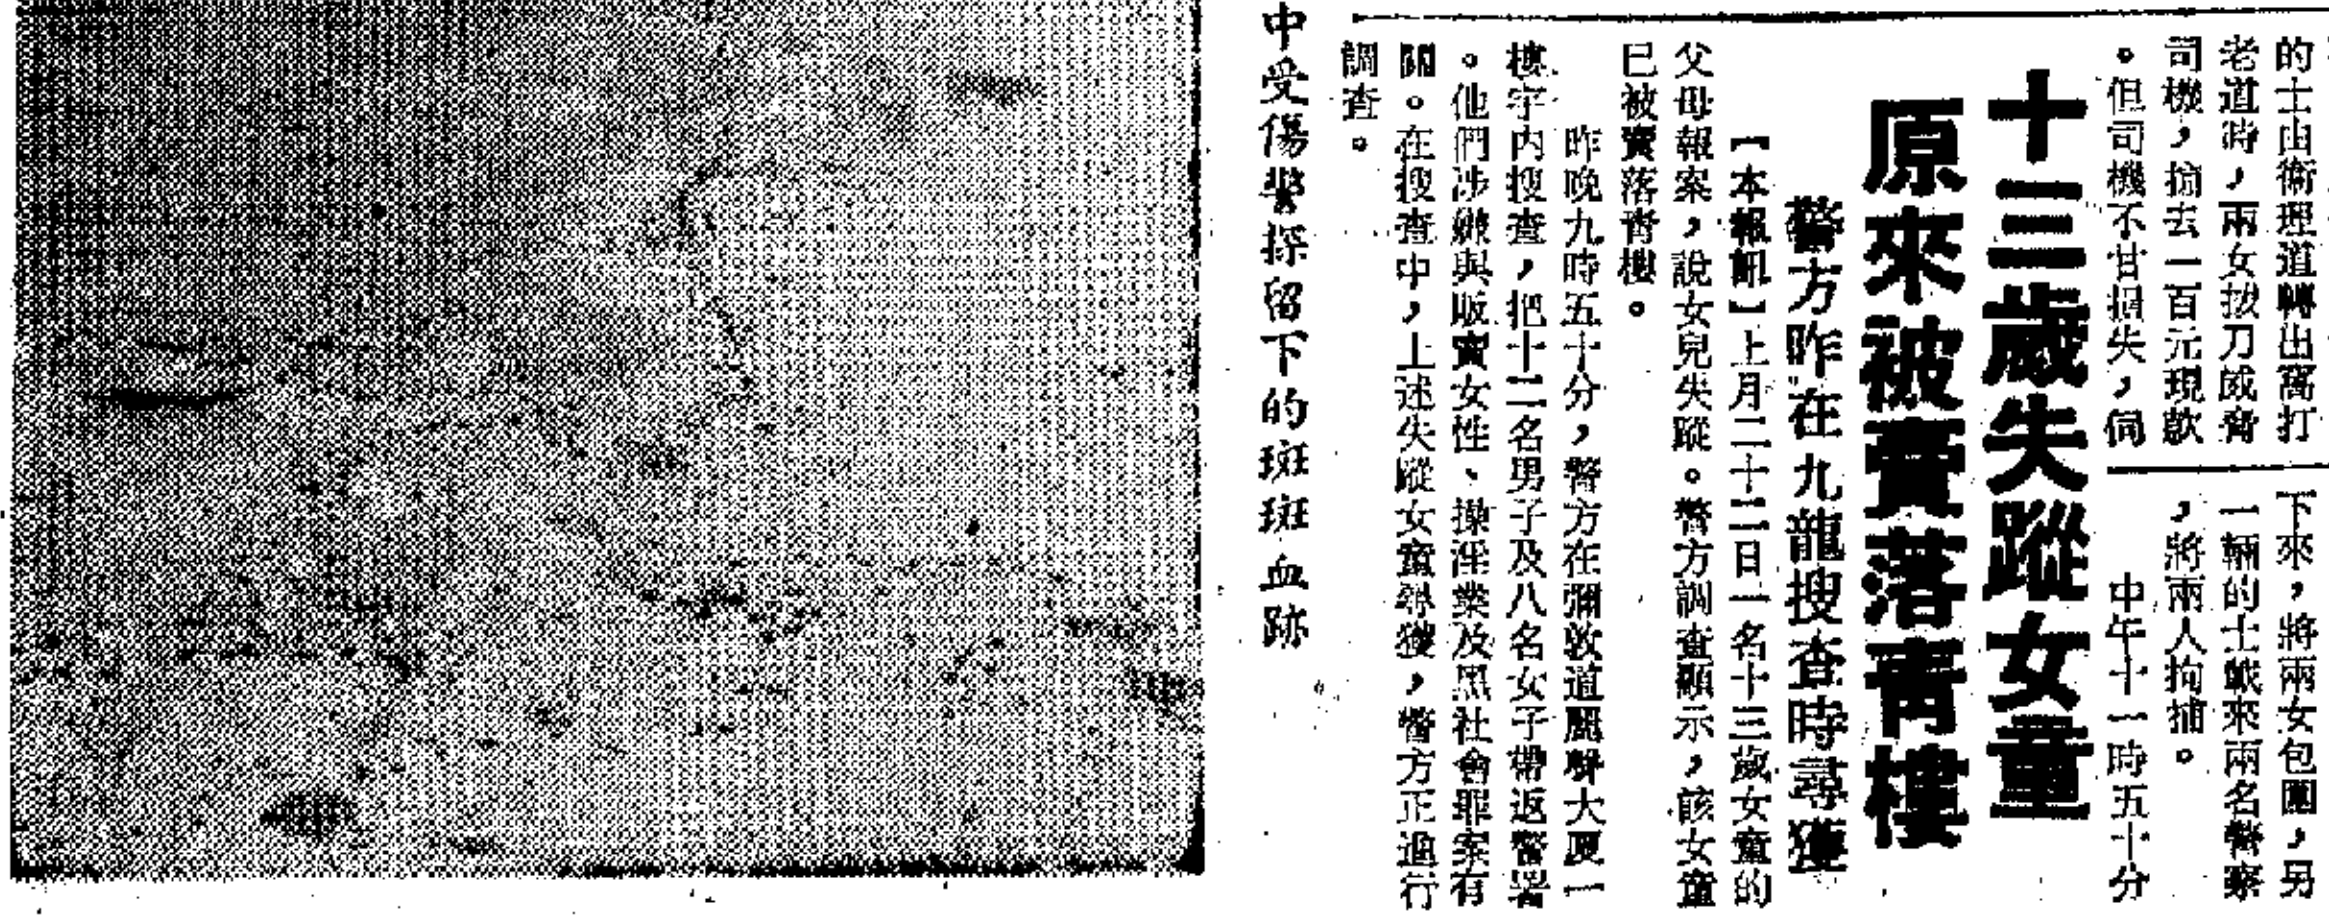 的士由衞理道轉出窩打
老道時，兩女拔刀威脅
司機，掠去一百元現款
。但司機不甘損失，伺
下來，將兩女包圍，另
一輛的士載來兩名警察
，將兩人拘捕。
中午十一時五十分
十三歲失蹤女童
原來被賣落靑樓
警方昨在九龍搜查時尋獲
【本報訊】上月二十二日一名十三歲女童的
父母報案，說女兒失蹤。警方調查顯示，該女童
已被賣落靑樓。
昨晚九時五十分，警方在彌敦道麗聲大厦一
樓宇內搜查，把十二名男子及八名女子帶返警署
。他們涉嫌與販賣女性、操淫業及黑社會罪案有
關。在搜查中，上述失蹤女童尋獲，警方正進行
調查。
中受傷警探留下的斑斑血跡